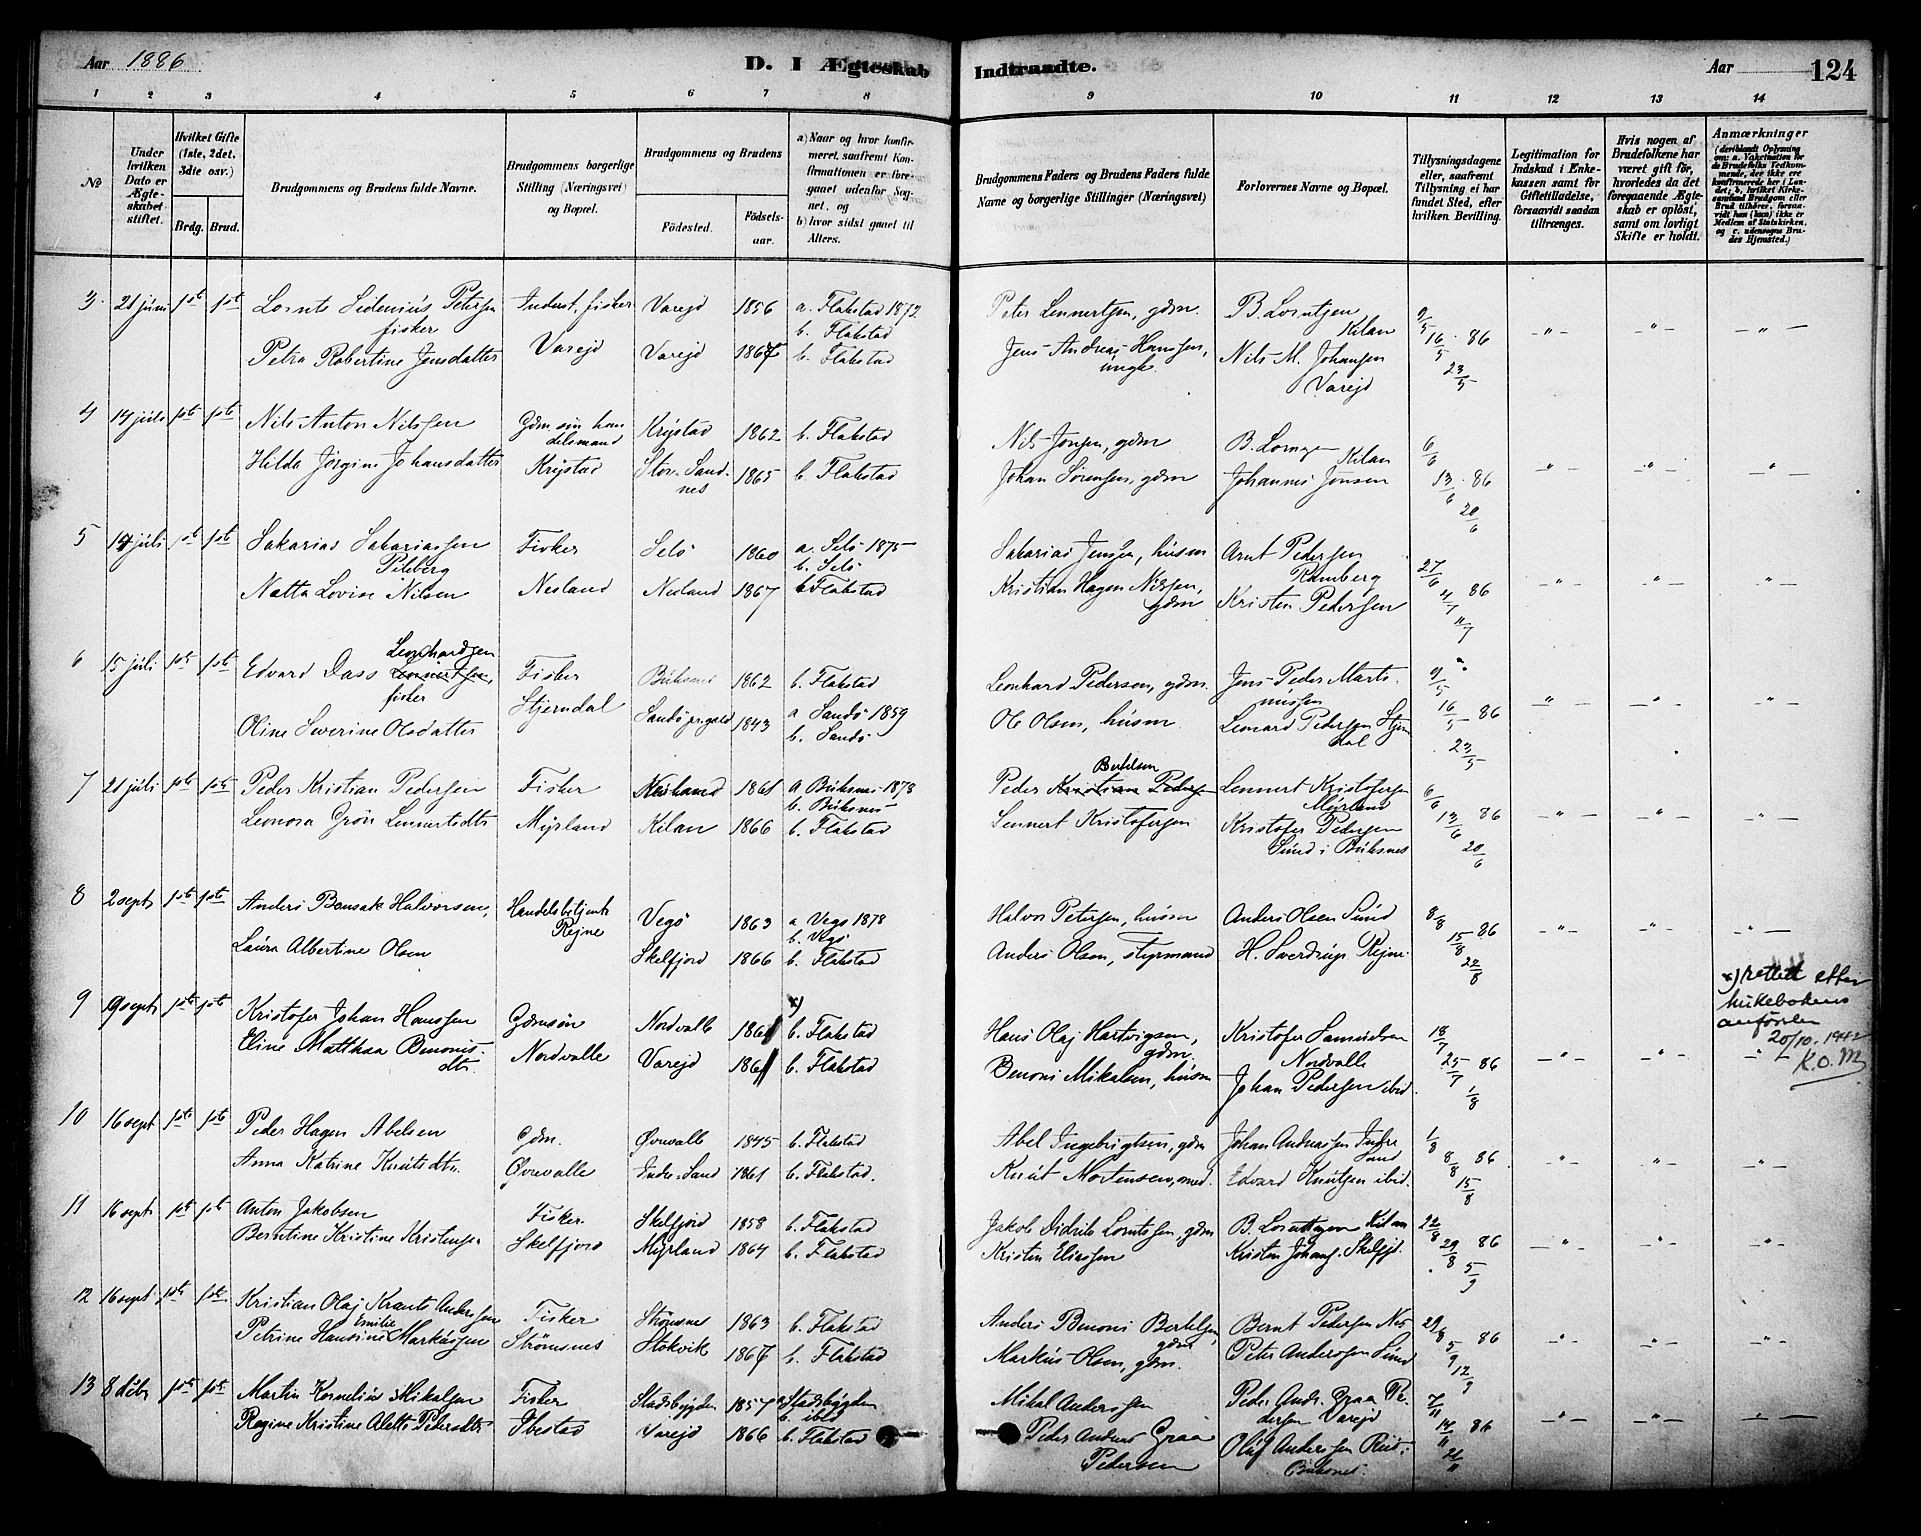 Aar 1886
D. I Ægteskab
Indtraadte.
Aar
124
1 2 3 4 5 6 7 8
9 10 11 12 13 14
No
Under hvilken Dato er Ægteskabet stiftet.
Hvilket Gifte (1ste, 2det, 3die osv.)
Brdg. Brud.
Brudgommens og Brudens fulde Navne.
Brudgommens borgerlige Stilling (Næringsvei) og Bopæl.
Brudgommens og Brudens
Fødested.
Fødselsaar.
a) Naar og hvor konfirmeret, saafremt Konfirmationen er foregaaet udenfor Sognet, og
b) hvor sidst gaaet til Alters.
Brudgommens Faders og Brudens Faders fulde Navne og borgerlige Stillinger (Næringsvei)
Forlovernes Navne og Bopæl.
Tillysningsdagene eller, saafremt Tillysning ei har fundet Sted, efter hvilken Bevilling.
Legitimation for Indskud i Enkekassen samt for Giftetilladelse, forsaavidt saadan tiltrænges.
Hvis nogen af Brudefolkene har været gift før, hvorledes da det foregaaende Ægteskab er opløst, samt om lovligt Skifte er holdt.
Anmærkninger
3 21 juni 1ste 1ste Lornts Sidenius Petersen Inderst, fisker Varejd 1856 a. Flakstad 1872 Peter Lennertsen, gdm. B. Lorntzen 9/5
fisker b. Flakstad Kilan 16/5 86 -"- -"- -"-
Petra Robertine Jensdatter Varejd Varejd 1867 b. Flakstad Jens Andreas Hanssen, Nils M. Johansen 23/5
ungk. Varejd
4 14 juli 1ste 1ste Nils Anton Nilssen Gdm. søn han Krystad 1862 b. Flakstad Nils Jonsen, gdm B. Lornzen 6/6
delsmand Kilan
Hilda Jørgine Johansdatter Krystad Stor-Sandnes 1865 b. Flakstad Johan Sørensen, gdm Johannes Jonsen 13/6 86 -"- -"- -"-
20/6
5 14 juli 1ste 1ste Sakarias Sakariassen Fisker Selø 1860 a. Selø 1875 Sakarias Jenssen, husm Arnt Pedersen 27/6
Pileberg b. Selø Ramberg
Natta Lovise Nilsen Nesland Nesland 1867 b. Flakstad Kristian Hagen Nilssen, Kristen Pedersen 4/7 86 -"- -"- -"-
gdm 11/7
6 15 juli 1ste 1ste Edvard Dass Leonhardsen Fisker Buksnes 1862 b. Flakstad Leonhard Pedersen, gdm. Jens Peder Martinussen 9/5
fisker Stjerndal 16/5 86 -"- -"- -"-
Oline Severine Olsdatter Sandø prgjeld 1843 a Sandø 1859 Ole Olsen, husm. Leonard Pedersen Stjerndal 23/5
b. Sandø
7 21 juli 1ste 1ste Peder Kristian Pedersen Fisker Nesland 1861 a Buksnes 1878 Peder Kristian Pedersen Bertelsen Lennert Kristofersen 6/6
b. Buksnes Myrland
Leonora Grøn Lennertsdtr Myrland Kilan 1866 b. Flakstad Lennert Kristofersen Kristofer Pedersen 13/6 86 -"- -"- -"-
Sund i Buksnes 20/6
8 2 septr 1ste 1ste Anders Bensak Halvorsen, Handelsbetjent Vegø 1863 a Vegø 1878 Halvor Petersen, husm Anders Olsen Sund 8/8
Rejne b. Vegø 15/8 86 -"- -"- -"-
Laura Albertine Olsen Skelfjord 1866 b. Flakstad Anders Olsen, styrmand H. Sverdrup Rejne 22/8
9 9 septr 1ste 1ste Kristofer Johan Hanssen Gdmsøn Nordvalle 1861 x) b. Flakstad Hans Olaj Hartvigsen, Kristofer Samuelsen 18/7
gdm. Nordvalle
Eline Matthea Benonisdtr. Nordvalle Varejd 1861 b. Flakstad Benoni Mikalsen, husm Johan Pedersen ibid. 25/7 86 -"- -"- -"-
1/8
x) rettet efter
kirkebokens
anførsler
20/10. 1942
K.O.M
10 16 sept 1ste 1ste Peder Hagen Abelsen Gdm. Øvrevalle 1845 b. Flakstad Abel Ingebrigtsen, gdm Johan Andreassen Indre Sand 1/8
Anna Katrine Knutsdtr. Øvrevalle Indre-Sand 1861 b. Flakstad. Knut Mortensen, med. Edvard Knutsen ibid. 8/8 86 -"- -"- -"-
15/8
11 16 sept 1ste 1ste Anton Jakobsen Fisker Skelfjord 1858 b. Flakstad Jakob Didrik Lorntssen, gdm B. Lorntzen Kilan 22/8
Berntine Kristine Kristensen Skelfjord Myrland 1864 b. Flakstad Kristen Eliassen Kristen Johans. Skelfjd. 29/8 86 -"- -"- -"-
5/9
12 16 sept 1ste 1ste Kristian Olaj Krants Anderssen Fisker Strømsnes 1863 b. Flakstad Anders Benoni Bertelsen, Bernt Pedersen Nes 29/8
gdm
Petrine Hansine Emilie Markussen Strømsnes Stokvik 1867 b. Flakstad Markus Olsen, gdm. Peter Anderssen Sund 5/9 86 -"- -"- -"-
12/9
13 8 debr 1ste 1ste Martin Kornelius Mikalsen Fisker Stadsbygden 1857 a Stadsbygden Mikal Anderssen Peder Andr. Graa Pedersen Varejd 7/11
b. ibid
Regine Kristine Alette Pedersdtr Ibestad Varejd 1866 b. Flakstad Peder Andreas Graa Pedersen Oluf Anderssen 14/11 86 -"- -"- -"-
Buksnes. 21/11